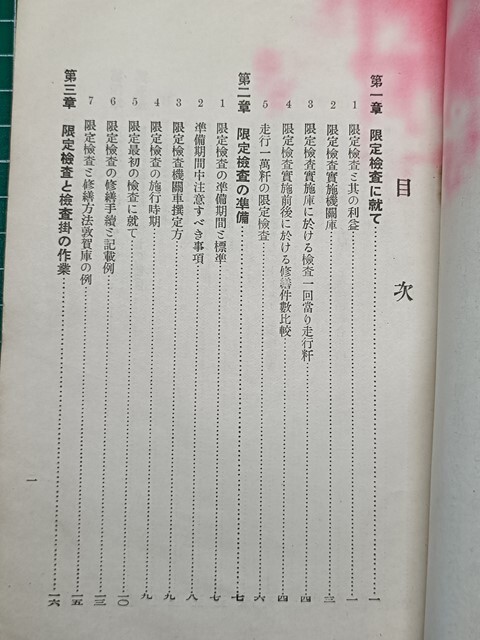 目次
第一章 限定檢査に就て……一
1 限定檢査と其の利益……一
2 限定檢査實施機關庫……三
3 限定檢査實施庫に於ける檢査一回當り走行粁……四
4 限定檢査實施前後に於ける修繕件數比較……四
5 走行一萬粁の限定檢査……六
第二章 限定檢査の準備……七
1 限定檢査の準備期間と標準……七
2 準備期間中注意すべき事項……八
3 限定檢査機關車撰定方……九
4 限定檢査の施行時期……九
5 限定最初の檢査に就て……一〇
6 限定檢査の修繕手續と記載例……一三
7 限定檢査と修繕方法敦賀庫の例……一五
第三章 限定檢査と檢査掛の作業……一六
一